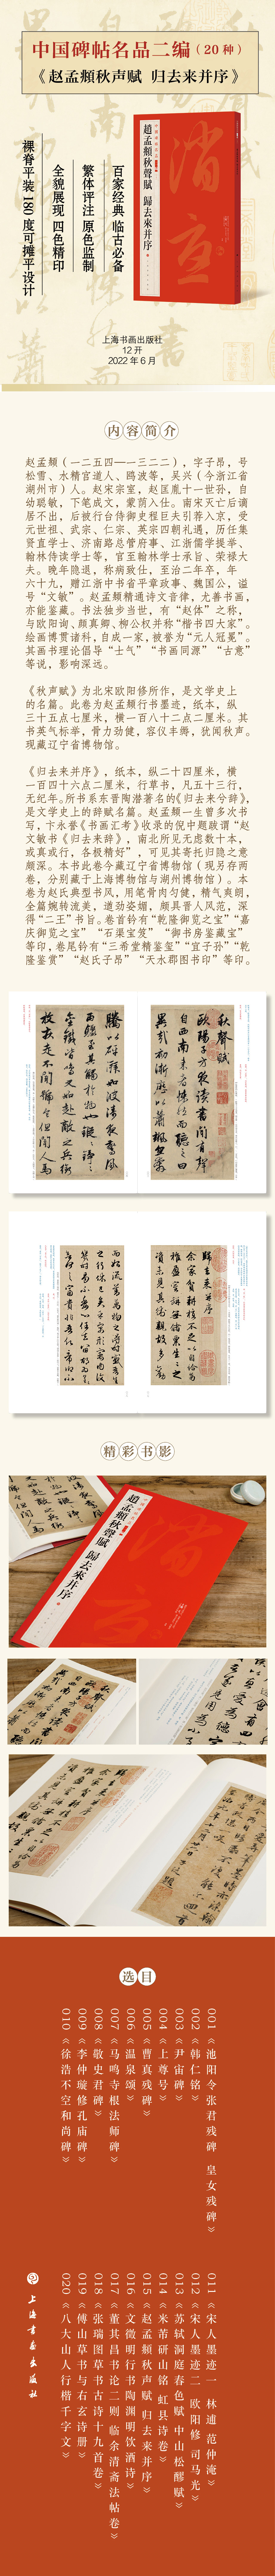 中国碑帖名品二编（20种）
《赵孟頫秋声赋 归去来并序》
百家经典 临古必备
繁体评注 原色监制
全貌展现 四色精印
裸脊平装 180度可摊平设计
中国碑帖名品二编
趙孟頫秋聲賦 歸去來并序
上海书画出版社
12开
2022年6月
内容简介
赵孟頫（一二五四—一三二二），字子昂，号
松雪、水精宫道人、鸥波等，吴兴（今浙江省
湖州市）人。赵宋宗室，赵匡胤十一世孙，自
幼聪敏，下笔成文，蒙荫入仕。南宋灭亡后谪
居不出，后被行台侍御史程巨夫引荐入京，受
元世祖、武宗、仁宗、英宗四朝礼遇，历任集
贤直学士、济南路总管府事、江浙儒学提举、
翰林侍读学士等，官至翰林学士承旨、荣禄大
夫。晚年隐退，称病致仕，至治二年卒，年
六十九，赠江浙中书省平章政事、魏国公，谥
号“文敏”。赵孟頫精通诗文音律，尤善书画，
亦能鉴藏。书法独步当世，有“赵体”之称，
与欧阳询、颜真卿、柳公权并称“楷书四大家”。
绘画博贯诸科，自成一家，被誉为“元人冠冕”。
其书画理论倡导“士气”“书画同源”“古意”
等说，影响深远。
《秋声赋》为北宋欧阳修所作，是文学史上
的名篇。此卷为赵孟頫行书墨迹，纸本，纵
三十五点七厘米，横一百八十二点二厘米。其
书英气标举，骨力劲健，容仪丰阔，犹闻秋声。
现藏辽宁省博物馆。
《归去来并序》，纸本，纵二十四厘米，横
一百四十六点三厘米，行草书，凡五十三行，
无纪年。所书系东晋陶潜著名的《归去来兮辞》，
是文学史上的辞赋名篇。赵孟頫一生曾多次书
写，卞永誉《书画汇考》收录的倪中题跋谓“赵
文敏书《归去来辞》，南北所见无虑数十本，
或真或行，各极精好”，可见其寄托归隐之意
颇深。本书此卷今藏辽宁省博物馆（现另存两
卷，分别藏于上海博物馆与湖州博物馆）。本
卷为赵氏典型书风，用笔骨肉匀健，精气爽朗，
全篇婉转流美，遒劲姿媚，颇具晋人风范，深
得“二王”书旨。卷首钤有“乾隆御览之宝”“嘉
庆御览之宝” “石渠宝笈” “御书房鉴藏宝”
等印，卷尾钤有“三希堂精鉴玺”“宜子孙”“乾
隆鉴赏” “赵氏子昂” “天水郡图书印”等印。
秋聲賦
歐陽子方夜讀書聞有聲
自西南來者悚然而聽之曰
異哉初淅瀝以蕭颯忽奔
騰而砰湃如波濤夜驚風
雨驟至其觸於物也鏦鏦錚錚
金鐵皆鳴又如赴敵之兵銜
枚疾走不聞號令但聞人馬
歸去來并序
余家貧耕植不足以自給幼
稚盈室缾無儲粟生生之
資未見其術親故多勸
精彩书影
趙孟頫秋聲賦 歸去來并序
选目
001《池阳令张君残碑 皇女残碑》
002《韩仁铭》
003《尹宙碑》
004《上尊号》
005《曹真残碑》
006《温泉颂》
007《马鸣寺根法师碑》
008《敬史君碑》
009《李仲璇修孔庙碑》
010《徐浩不空和尚碑》
011《宋人墨迹一 林逋 范仲淹》
012《宋人墨迹二 欧阳修 司马光》
013《苏轼洞庭春色赋 中山松醪赋》
014《米芾研山铭 虹县诗卷》
015《赵孟頫秋声赋 归去来并序》
016《文徵明行书陶渊明饮酒诗》
017《董其昌书论二则 临余清斋法帖卷》
018《张瑞图草书古诗十九首卷》
019《傅山草书与右玄诗册》
020《八大山人行楷千字文》
上海书画出版社